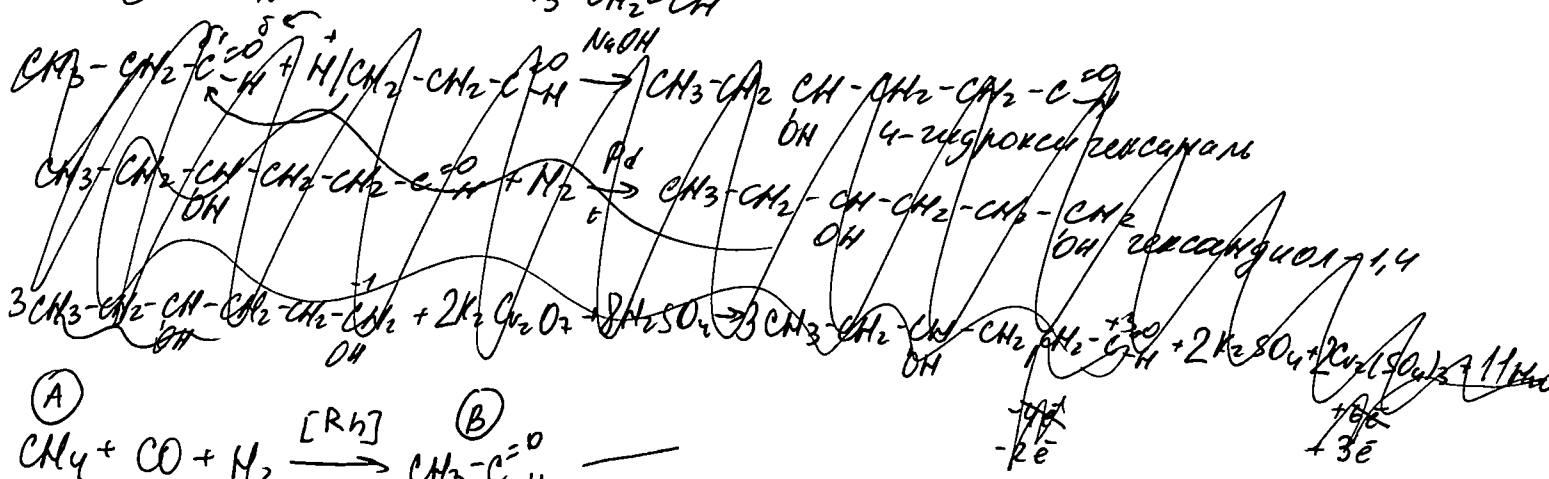 CH3-CH2-C=O-H + H/CH2-CH2-C=O-H → NaOH CH3-CH2 CH-CH2-CH2-C=O-H
OH 4-гидроксигексаналь
CH3-CH2-CH-CH2-CH2-C=O-H + H2 → Pd t CH3-CH2-CH-CH2-CH2-CH2
OH OH OH гександиол-1,4
3CH3-CH2-CH-CH2-CH2-CH2 + 2K2Cr2O7 + 8H2SO4 → 3CH3-CH2-CH-CH2 CH2-C=O-H + 2K2SO4 + 2Cr2(SO4)3 + 11H2O
OH OH OH
-2ē +3ē
A B
CH4 + CO + H2 [Rh] → CH3-C=O